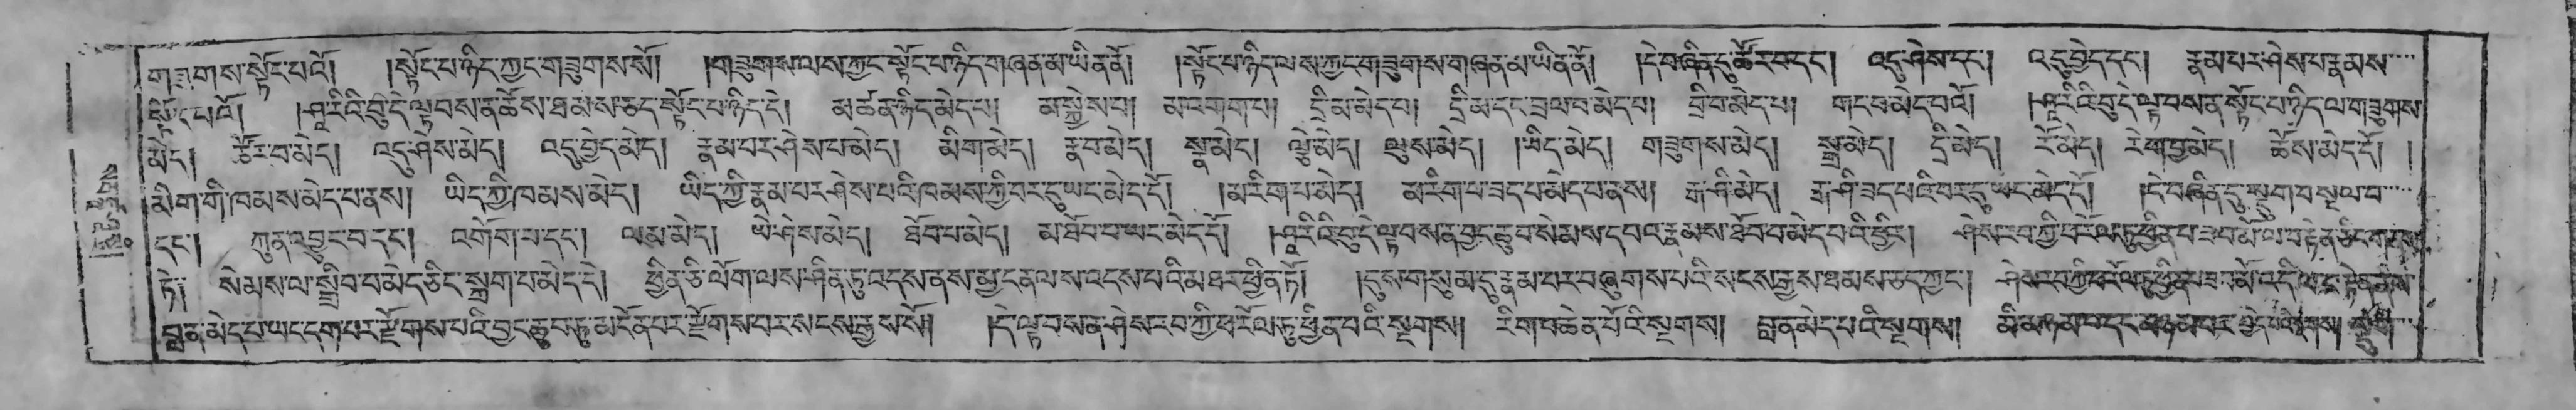 གཟུགས་སྟོང་པའོ། །སྟོང་པ་ཉིད་ཀྱང་གཟུགས་སོ། །གཟུགས་ལས་ཀྱང་སྟོང་པ་ཉིད་གཞན་མ་ཡིན་ནོ། །སྟོང་པ་ཉིད་ལས་ཀྱང་གཟུགས་གཞན་མ་ཡིན་ནོ། །དེ་བཞིན་དུ་ཚོར་བ་དང་། འདུ་ཤེས་དང་། འདུ་བྱེད་དང་། རྣམ་པར་ཤེས་པ་རྣམས་
སྟོང་པའོ། །ཤཱ་རིའི་བུ་དེ་ལྟ་བས་ན་ཆོས་ཐམས་ཅད་སྟོང་པ་ཉིད་དེ། མཚན་ཉིད་མེད་པ། མ་སྐྱེས་པ། མ་འགག་པ། དྲི་མ་མེད་པ། དྲི་མ་དང་བྲལ་བ་མེད་པ། བྲི་བ་མེད་པ། གང་བ་མེད་པའོ། །ཤཱ་རིའི་བུ་དེ་ལྟ་བས་ན་སྟོང་པ་ཉིད་ལ་གཟུགས་
མེད། ཚོར་བ་མེད། འདུ་ཤེས་མེད། འདུ་བྱེད་མེད། རྣམ་པར་ཤེས་པ་མེད། མིག་མེད། རྣ་བ་མེད། སྣ་མེད། ལྕེ་མེད། ལུས་མེད། །ཡིད་མེད། གཟུགས་མེད། སྒྲ་མེད། དྲི་མེད། རོ་མེད། རེག་བྱ་མེད། ཆོས་མེད་དོ། །
མིག་གི་ཁམས་མེད་པ་ནས། ཡིད་ཀྱི་ཁམས་མེད། ཡིད་ཀྱི་རྣམ་པར་ཤེས་པའི་ཁམས་ཀྱི་བར་དུ་ཡང་མེད་དོ། །མ་རིག་པ་མེད། མ་རིག་པ་ཟད་པ་མེད་པ་ནས། རྒ་ཤི་མེད། རྒ་ཤི་ཟད་པའི་བར་དུ་ཡང་མེད་དོ། །དེ་བཞིན་དུ་སྡུག་བསྔལ་བ་
དང་། ཀུན་འབྱུང་བ་དང་། འགོག་པ་དང་། ལམ་མེད། ཡེ་ཤེས་མེད། ཐོབ་པ་མེད། མ་ཐོབ་པ་ཡང་མེད་དོ། །ཤཱ་རིའི་བུ་དེ་ལྟ་བས་ན་བྱང་ཆུབ་སེམས་དཔའ་རྣམས་ཐོབ་པ་མེད་པའི་ཕྱིར། ཤེས་རབ་ཀྱི་ཕ་རོལ་ཏུ་ཕྱིན་པ་ཟབ་མོ་ལ་བརྟེན་ཅིང་གནས་
ཏེ། སེམས་ལ་སྒྲིབ་པ་མེད་ཅིང་སྐྲག་པ་མེད་དེ། ཕྱིན་ཅི་ལོག་ལས་ཤིན་ཏུ་འདས་ནས་མྱ་ངན་ལས་འདས་པའི་མཐར་ཕྱིན་ཏོ། །དུས་གསུམ་དུ་རྣམ་པར་བཞུགས་པའི་སངས་རྒྱས་ཐམས་ཅད་ཀྱང་། ཤེས་རབ་ཀྱི་ཕ་རོལ་ཏུ་ཕྱིན་པ་ཟབ་མོ་འདི་ལ་བརྟེན་ནས་
བླ་ན་མེད་པ་ཡང་དག་པར་རྫོགས་པའི་བྱང་ཆུབ་ཏུ་མངོན་པར་རྫོགས་པར་སངས་རྒྱས་སོ། །དེ་ལྟ་བས་ན་ཤེས་རབ་ཀྱི་ཕ་རོལ་ཏུ་ཕྱིན་པའི་སྔགས། རིག་པ་ཆེན་པོའི་སྔགས། བླ་ན་མེད་པའི་སྔགས། མི་མཉམ་པ་དང་མཉམ་པར་བྱེད་པའི་སྔགས། སྡུག་